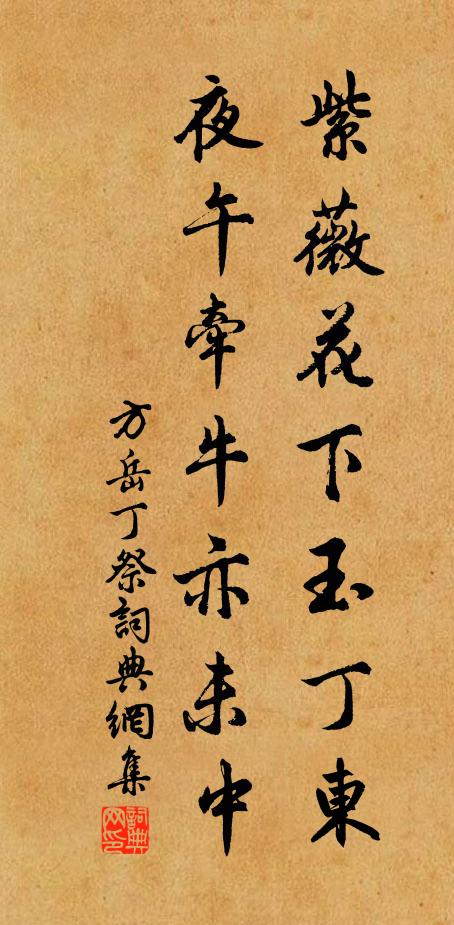 紫薇花下玉丁東
夜午牽牛亦未中
方岳丁祭詞典網集
詞典网印